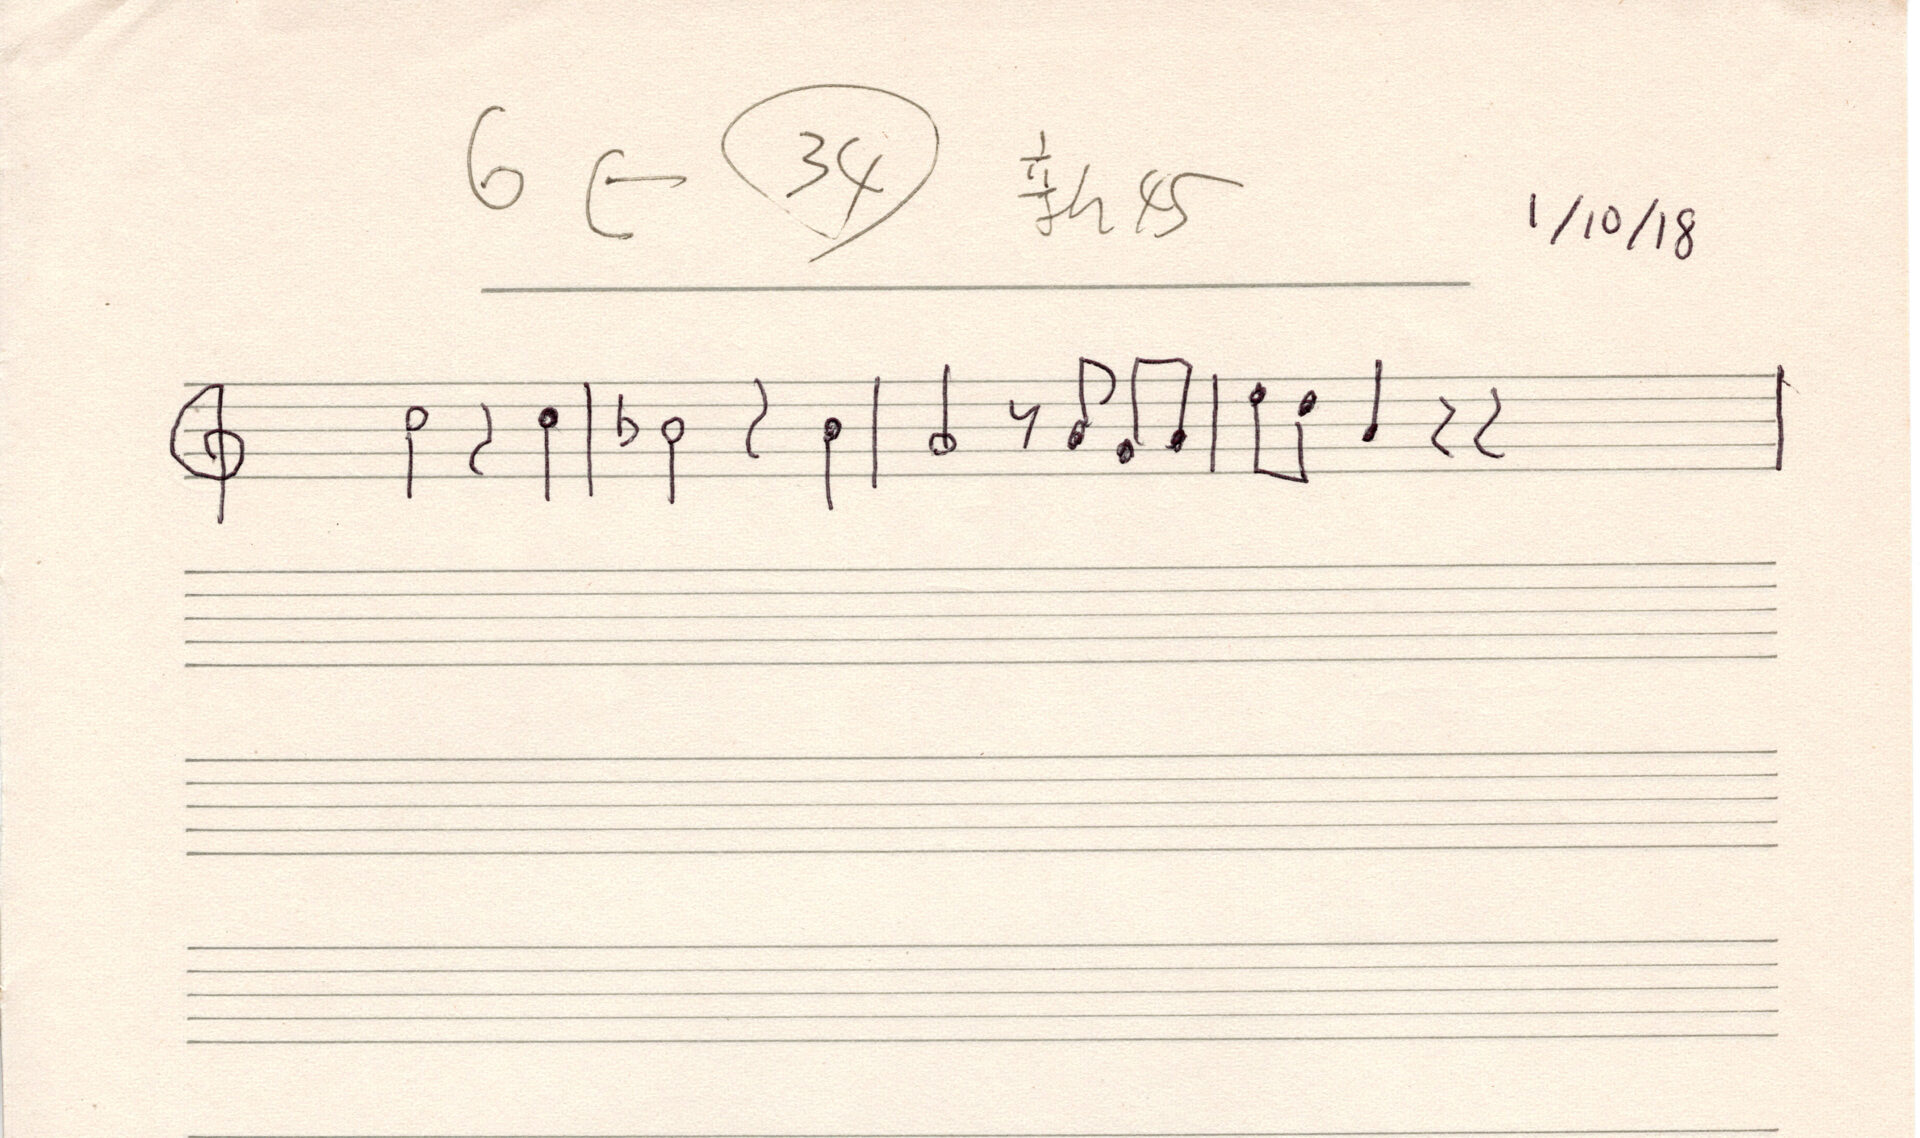 6 ← 34 新45
1/10/18